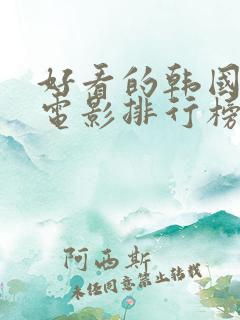 好看的韩国
電影排行榜
阿西斯
未经同意禁止转载